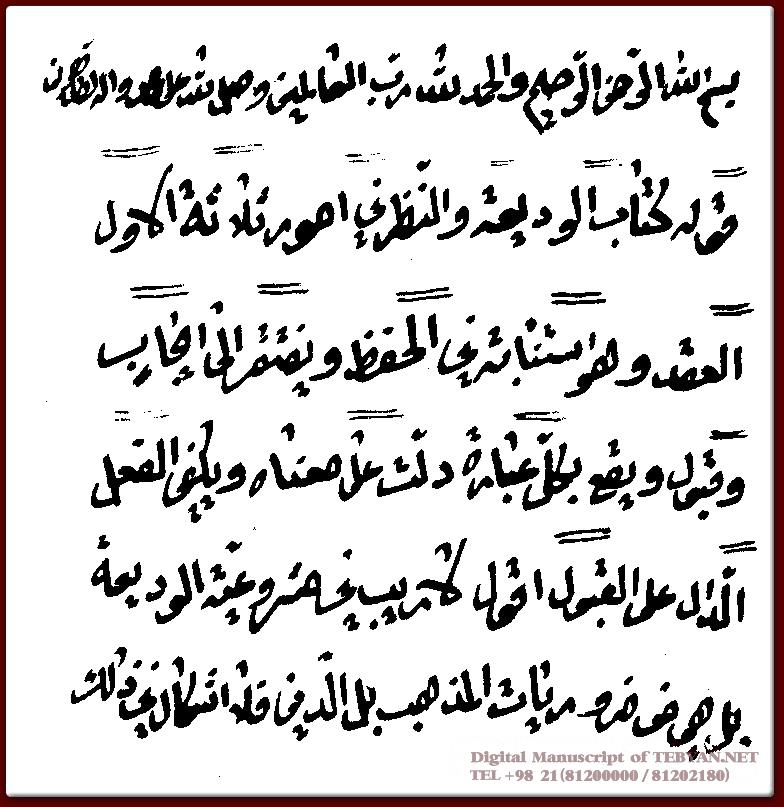 بسم الله الرحمن الرحيم والحمد لله رب العالمين وصلى الله على محمد واله الطاهرين
قوله كتاب الوديعة والنظر في امور ثلاثة الاول
العقد وهو استنابة في الحفظ ويفتقر الى ايجاب
وقبول ويقع بكل عبارة دلت على معناه ويكفى الفعل
الدال على القبول اقول لا ريب في مشروعية الوديعة
بل هى من ضروريات المذهب بل الدين فلا اشكال في ذلك
Digital Manuscript of TEBYAN.NET
TEL +98 21(81200000 / 81202180)